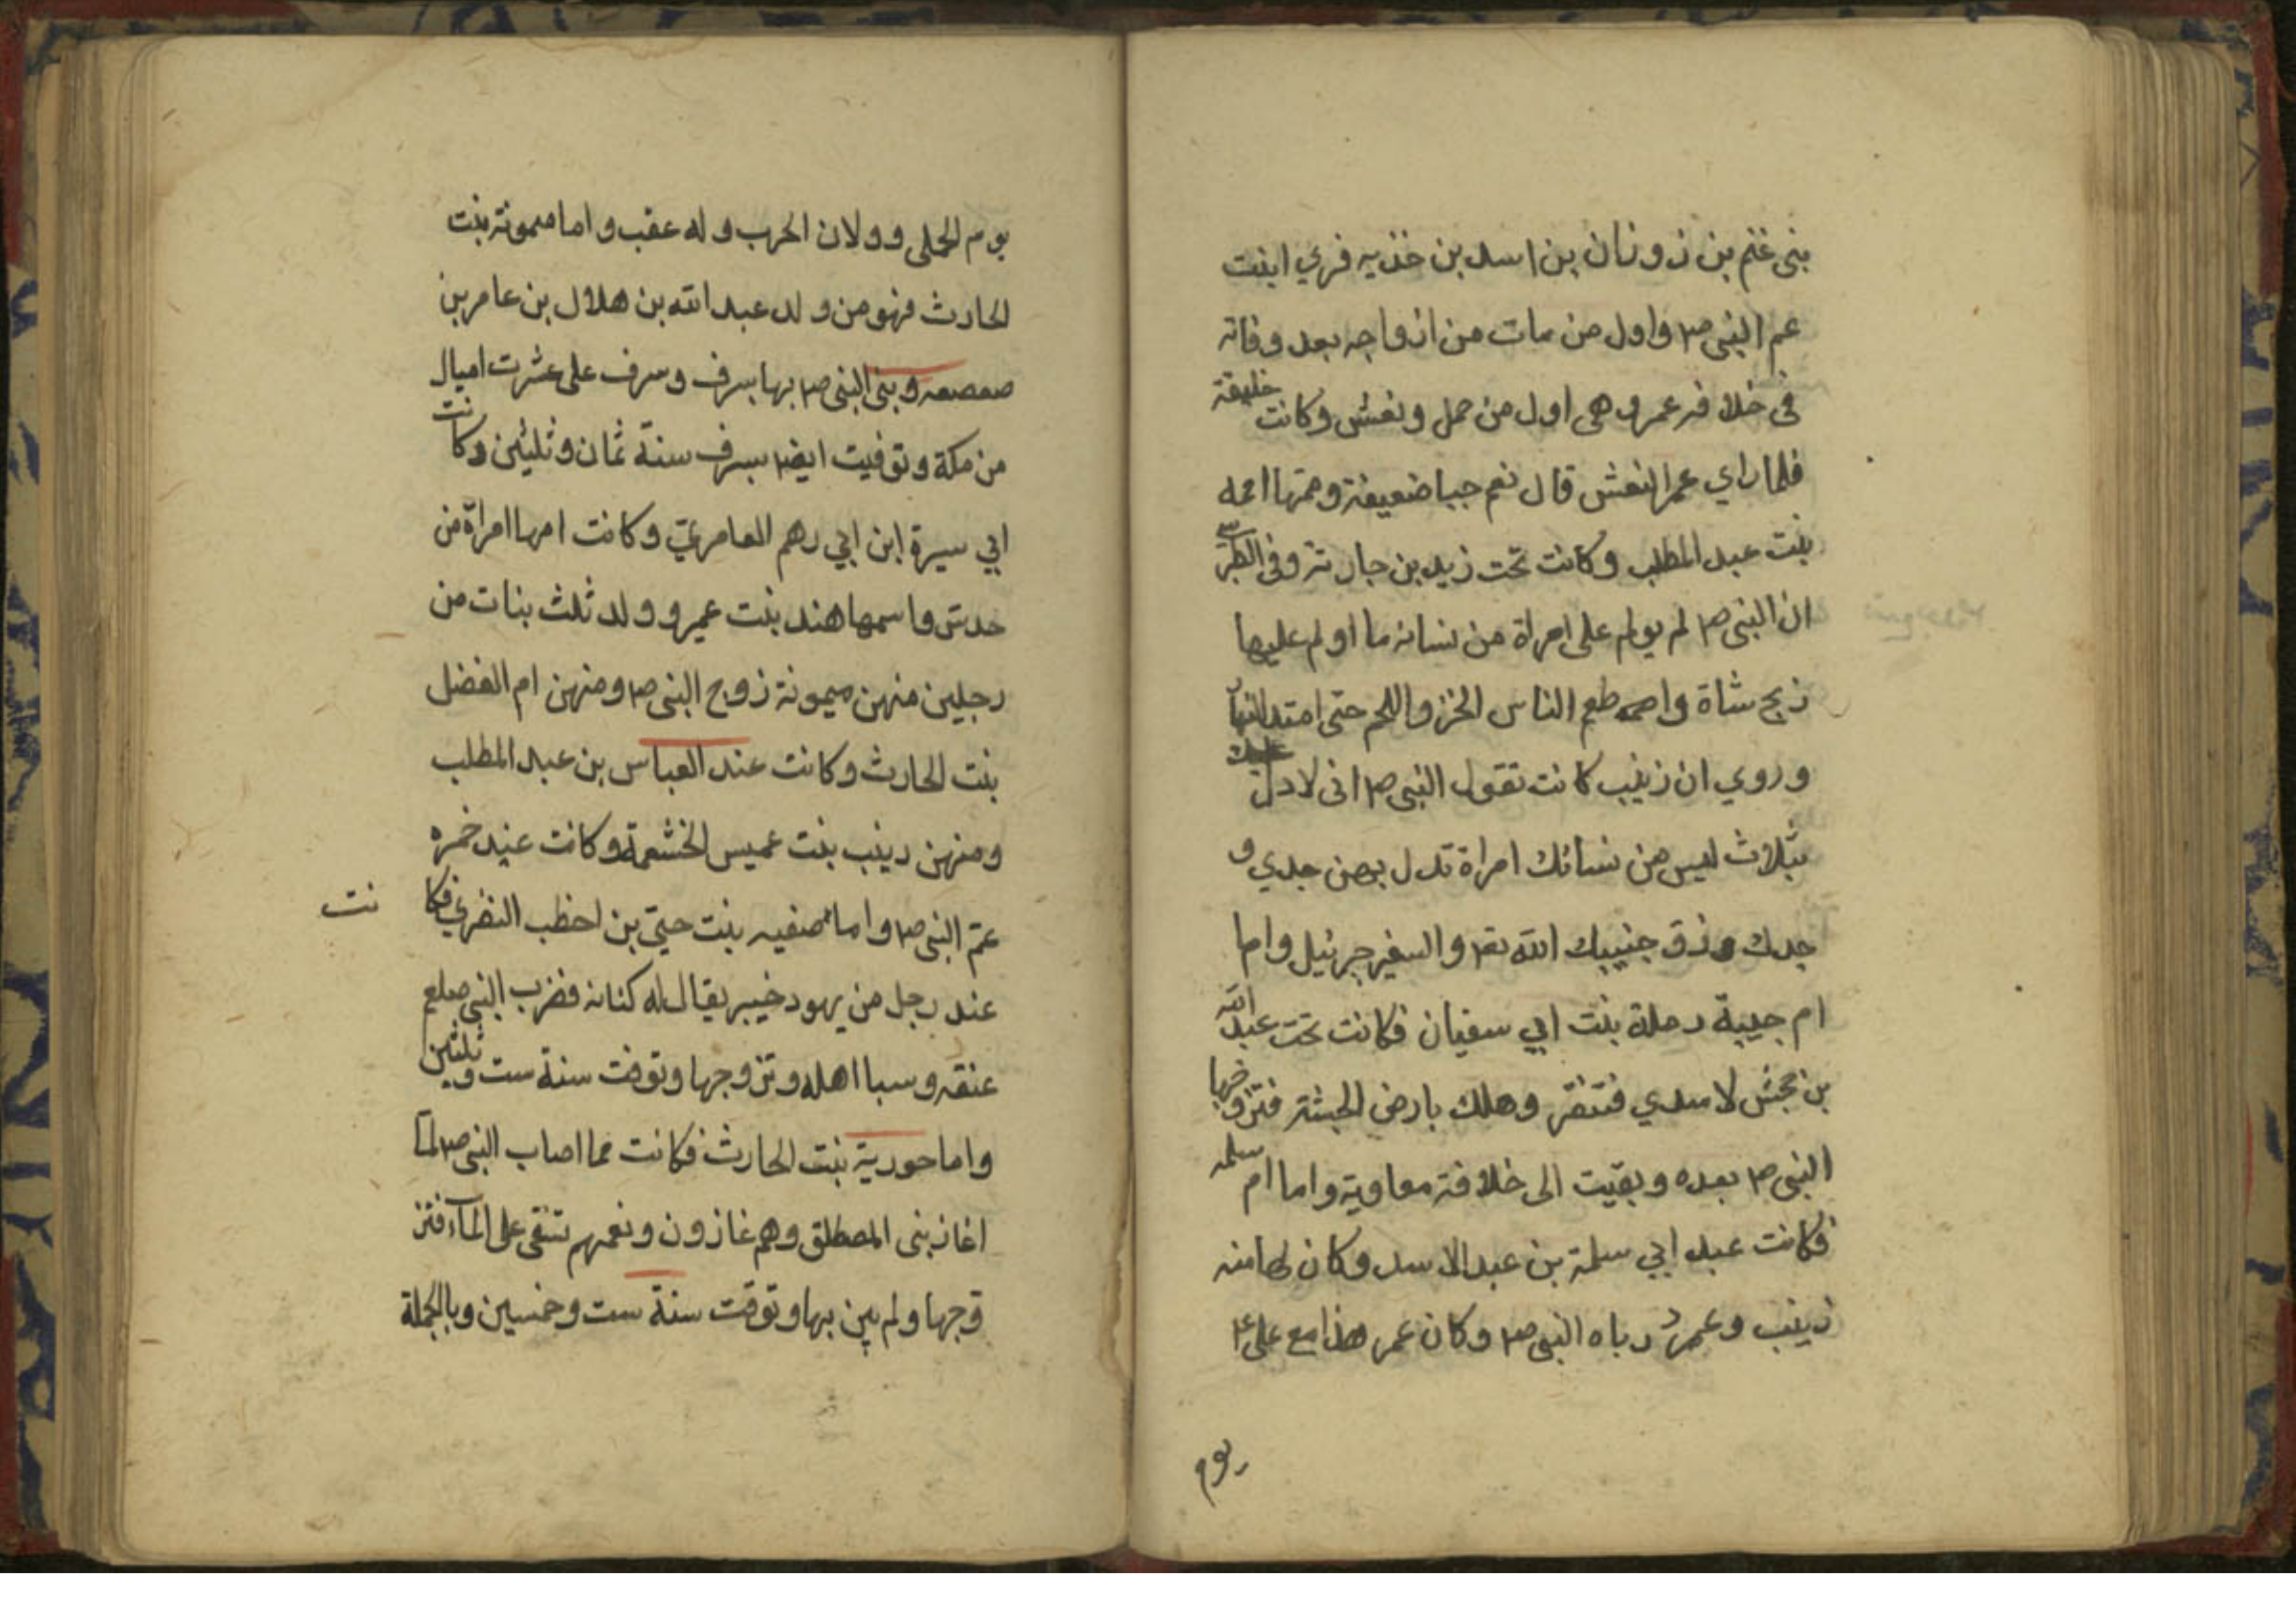 بنى غنم بن زونان بن اسد بن خذيه فري ابنت
عم النبى ص١ واول من مات من ازواجه بعد وفاته
فى خلافه عمر وهى اول من حمل ونعش وكانت خليفة
فلما راي عمر النعش قال نعم جبا ضعيفة وهمتها امه
بنت عبد المطلب وكانت تحت زيد بن حارثة وفى الطبرسى
ان النبى ص١ لم يولم على امراة من نسائه ما اولم عليها
ذبح شاة واصمه طعم الناس الخز واللحم حتى امتد النهار
وروي ان زينب كانت تقول النبى ص١ انى لادل عليك
بثلاث ليس من نسائك امراة تدل بهن جدي و
جدك وزق جنييك الله تع١ والسفير جبرئيل واما
ام حبيبة رملة بنت ابي سفيان فكانت تحت عبد الله
بن جحش لاسدي فتنصر وهلك بارض الحبشة فتزوجها
النبى ص١ بعده وبقيت الى خلافة معاوية واما ام سلمه
فكانت عبد ابي سلمة بن عبد الاسد وكان لها منه
زينب وعمر رباه النبى ص١ وكان عمر هذا مع على ع١
يوم
يوم الجملى وولان الحرب وله عقب واما ميمونة بنت
الحادث فهو من ولد عبد الله بن هلال بن عامر بن
صعصعه وبنى النبى ص١ بها بسرف وسرف على عشرت اميال
من مكة وتوفيت ايض١ بسرف سنة ثمان وثلثين وكانت
ابي سيرة ابن ابي رهم العامري وكانت امها امراة من
حدش واسمها هند بنت عمير وولد ثلث بنات من
رجلين منهن ميمونة زوج النبى ص١ ومنهن ام الفضل
بنت الحارث وكانت عند العباس بن عبد المطلب
ومنهن دينب بنت عميس الخثعمة وكانت عيند خمره
عم النبى ص١ واما صفيه بنت حيي بن احظب النضري فكا نت
عند رجل من يهود خيبر يقال له كنانه فضرب النبى صلعم
عنقه وسبا اهله وتزوجها وتوفت سنة ست وثلثين
واما حورية بنت الحارث فكانت مما اصاب النبى ص١ لما
اغاز بنى المصطلق وهم غازون ونعمهم تنقى على الماء فتز
وجها ولم يبن بها وتوقت سنة ست وخمسين وبالجملة